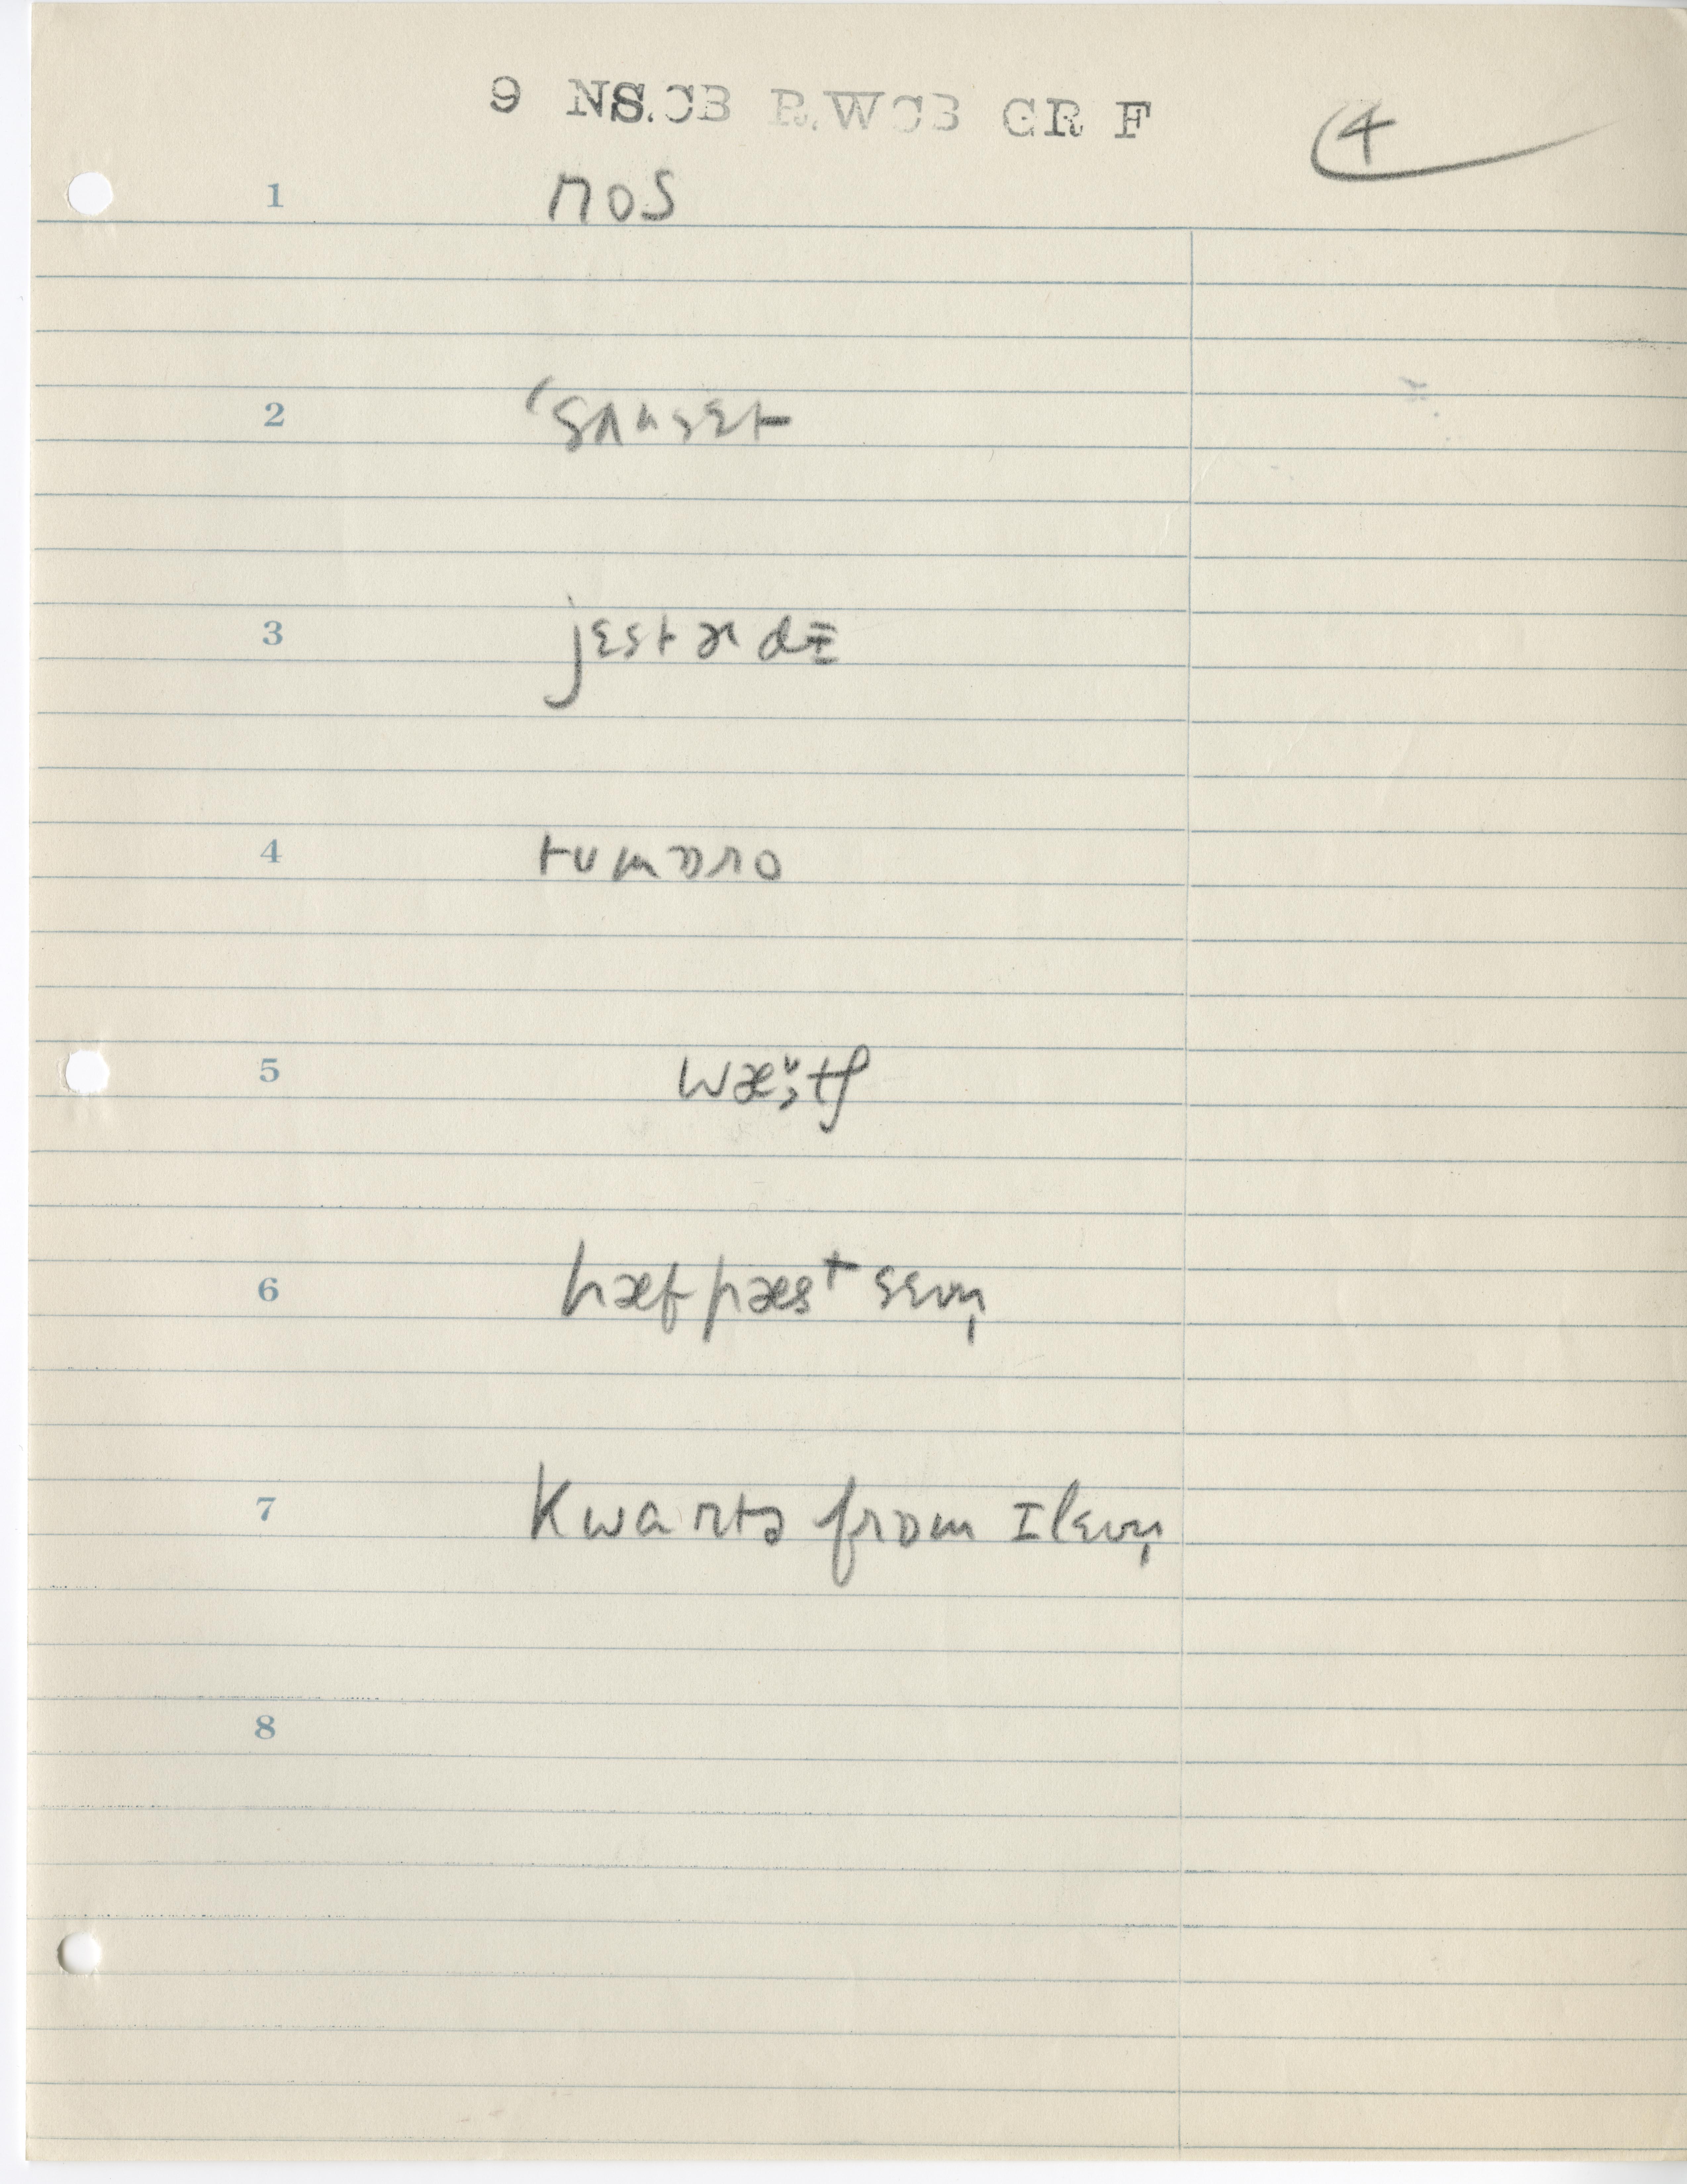 9 NS.CB R.WCB GR F
4
1 ros
2 ˈsʌnsɛt
3 jɛstɚdɪ
4 tumɒro
5
6 hæf pæst sɛvn̩
7 kwɑrtɚ frɒm ɪlɛvn̩
8